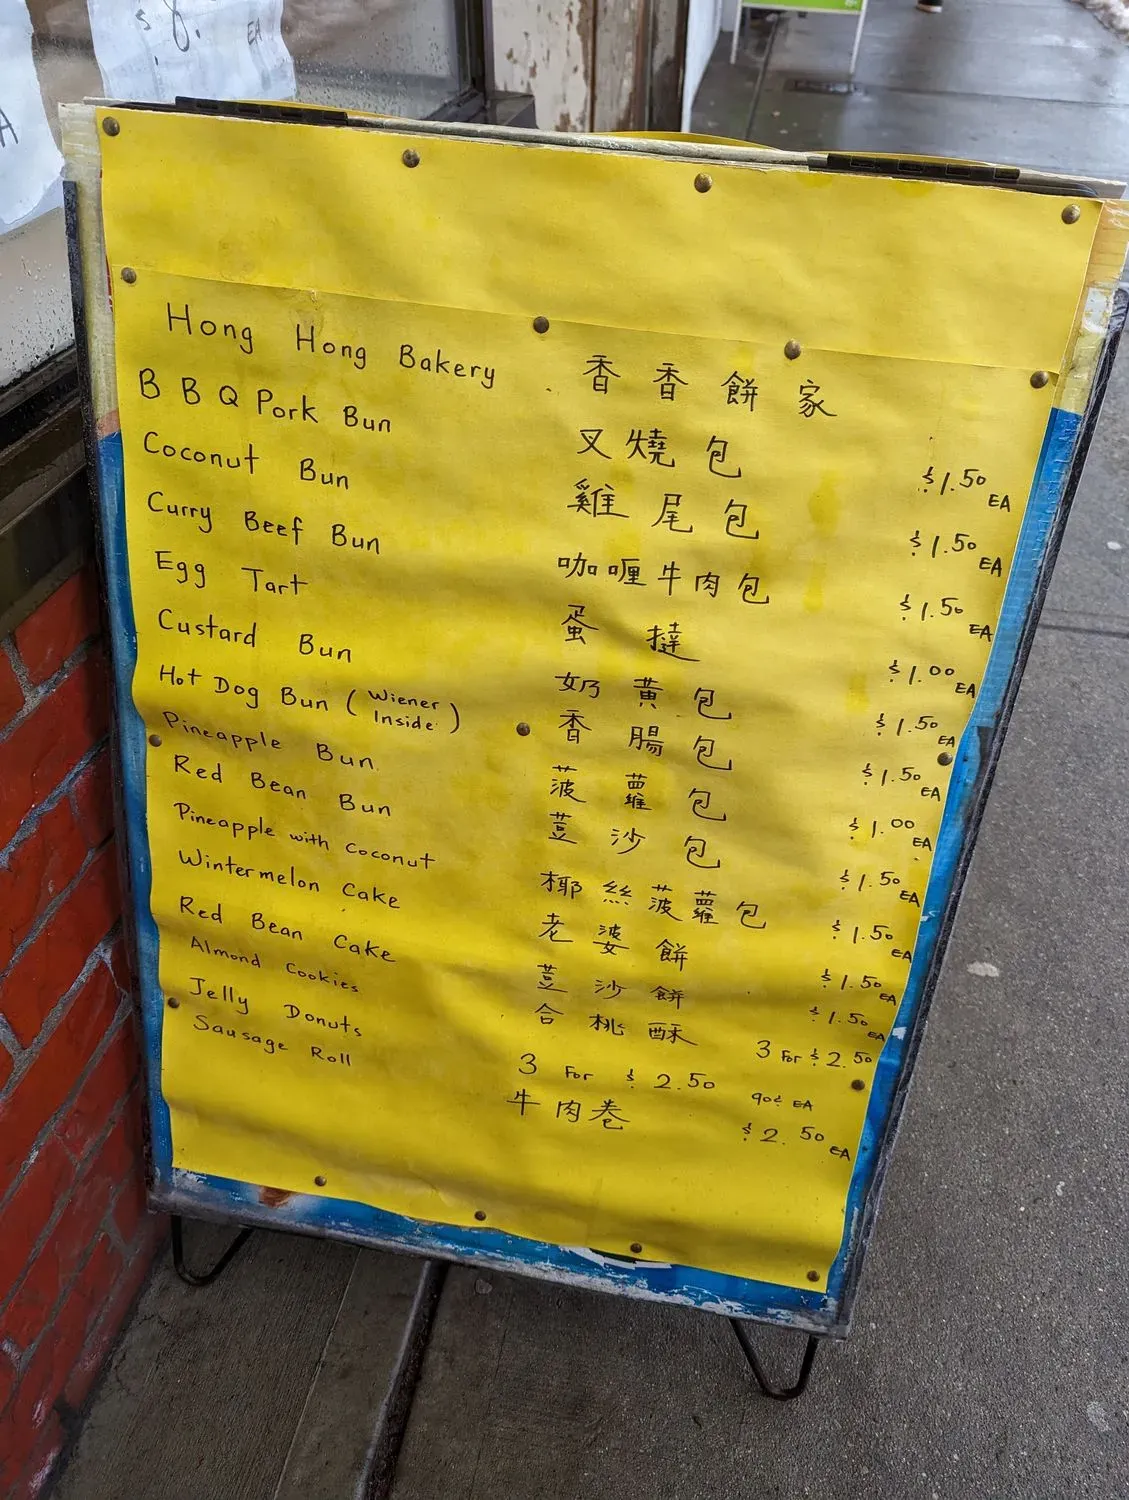 $8. EA
A
Hong Hong Bakery 香香餅家
BBQ Pork Bun 叉燒包 $1.50 EA
Coconut Bun 雞尾包 $1.50 EA
Curry Beef Bun 咖喱牛肉包 $1.50 EA
Egg Tart 蛋撻 $1.00 EA
Custard Bun 奶黃包 $1.50 EA
Hot Dog Bun (Wiener Inside) 香腸包 $1.50 EA
Pineapple Bun 菠蘿包 $1.00 EA
Red Bean Bun 荳沙包 $1.50 EA
Pineapple with Coconut 椰絲菠蘿包 $1.50 EA
Wintermelon Cake 老婆餅 $1.50 EA
Red Bean Cake 荳沙餅 $1.50 EA
Almond Cookies 合桃酥 3 For $2.50
Jelly Donuts 3 For $2.50 90¢ EA
Sausage Roll 牛肉卷 $2.50 EA